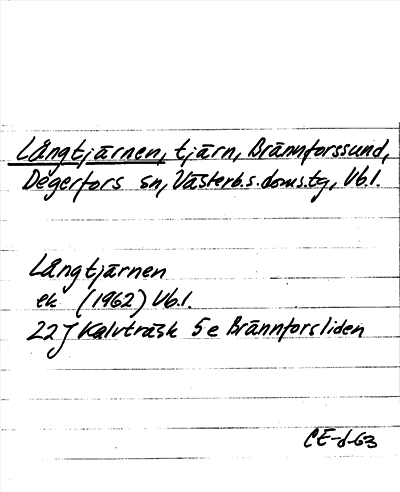 Långtjärnen, tjärn, Brännforssund,
Degerfors sn, Västerb.s.doms.tg, Vb.l.
Långtjärnen
ek (1962) Vb.l.
22J Kalvträsk 5e Brännforsliden
CE-d-63